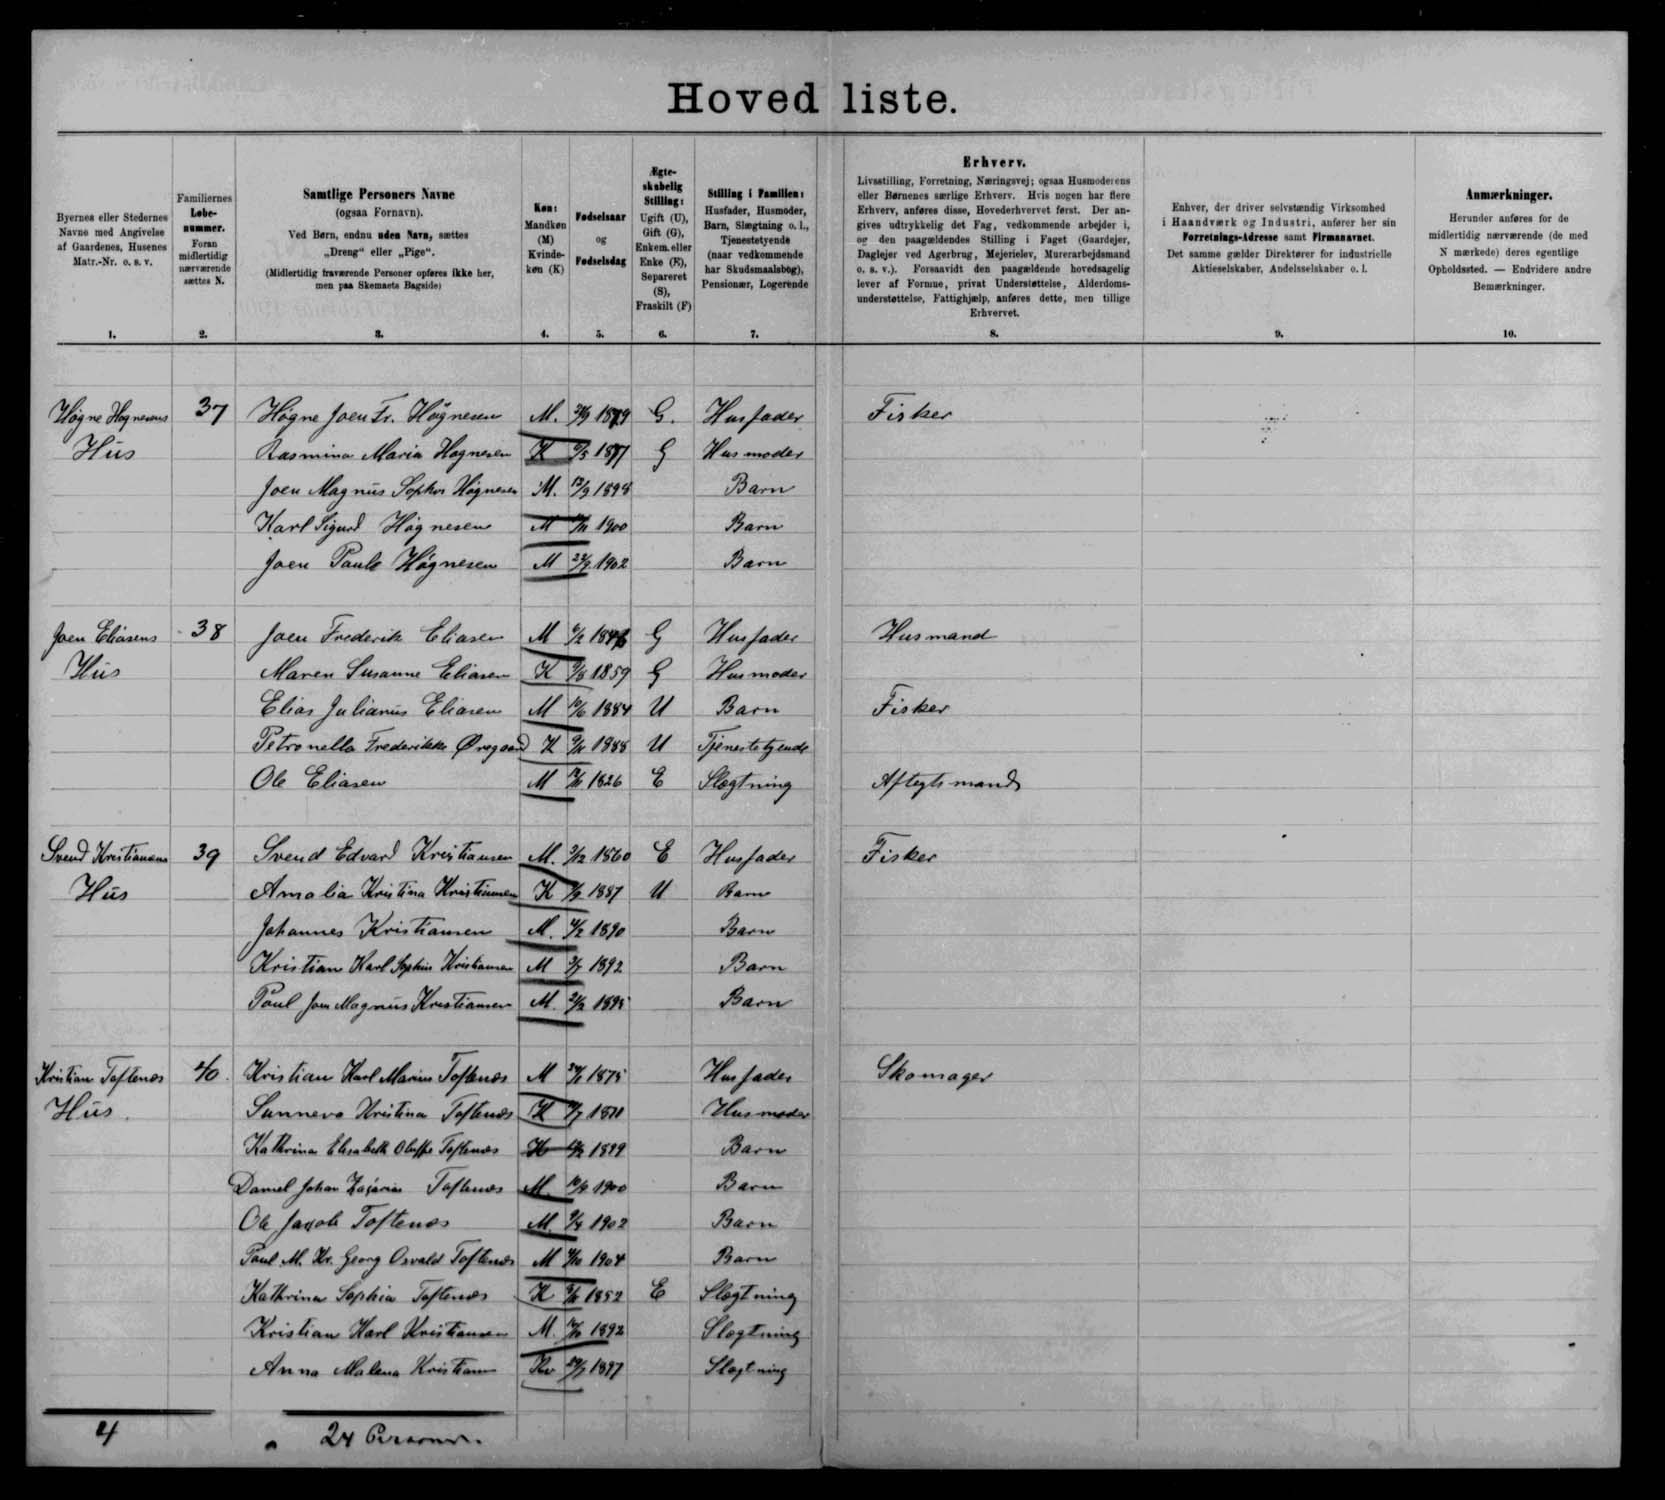 Hovedliste.
Byernes eller Stedernes Navne med Angivelse af Gaardenes, Husenes Matr.-Nr. o. s. v.
1.
Familiernes Løbe-nummer. Foran midlertidig nærværende sættes N.
2.
Samtlige Personers Navne (ogsaa Fornavn).
Ved Børn, endnu uden Navn, sættes „Dreng" eller „Pige".
(Midlertidig fraværende Personer opføres ikke her, men paa Skemaets Bagside)
3.
Køn: Mandkøn (M) Kvinde-køn (K)
4.
Fødselsaar og Fødselsdag
5.
Ægte-skabelig Stilling: Ugift (U), Gift (G), Enkem. eller Enke (E), Separeret (S), Fraskilt (F)
6.
Stilling i Familien: Husfader, Husmoder, Barn, Slægtning o. l., Tjenestetyende (naar vedkommende har Skudsmaalsbog), Pensionær, Logerende
7.
Erhverv.
Livsstilling, Forretning, Næringsvej; ogsaa Husmoderens eller Børnenes særlige Erhverv. Hvis nogen har flere Erhverv, anføres disse, Hovederhvervet først. Der angives udtrykkelig det Fag, vedkommende arbejder i, og den paagældendes Stilling i Faget (Gaardejer, Daglejer ved Agerbrug, Mejerielev, Murerarbejdsmand o. s. v.). Forsaavidt den paagældende hovedsagelig lever af Formue, privat Understøttelse, Alderdoms-understøttelse, Fattighjælp, anføres dette, men tillige Erhvervet.
8.
Enhver, der driver selvstændig Virksomhed i Haandværk og Industri, anfører her sin Forretnings-Adresse samt Firmanavnet. Det samme gælder Direktører for industrielle Aktieselskaber, Andelsselskaber o. l.
9.
Anmærkninger.
Herunder anføres for de midlertidig nærværende (de med N mærkede) deres egentlige Opholdssted. — Endvidere andre Bemærkninger.
10.
Høgne Høgnesens 37 Høgne Joen Fr. Høgnesen M. 1879 G. Husfader Fisker
Hús Rasmina Maria Høgnesen K 1877 G Husmoder
Joen Magnús Sophus Høgnesen M. 12/9 1898 Barn
Karl Sigurd Høgnesen M 1900 Barn
Joen Paule Høgnesen M 1902 Barn
Joen Eliasens 38 Joen Frederik Eliasen M G Husfader Husmand
Hús Maren Susanne Eliasen K 1859 G Husmoder
Elias Julianús Eliasen M 1884 U Barn Fisker
Petronella Frederikke Øregaard K 1888 U Tjenestetyende
Ole Eliasen M 1826 E Slægtning Aftægtsmand
Svend Kristiansens 39 Svend Edvard Kristiansen M. 1860 E Husfader Fisker
Hús Amalia Kristina Kristiansen K 1887 U Barn
Johannes Kristiansen M. 1890 Barn
Kristian Karl Sophus Kristiansen M 1892 Barn
Poul Joen Magnús Kristiansen M. 1895 Barn
Kristian Toftenæs 40. Kristian Karl Marius Toftenæs M 1875 Husfader Skomager
Hús. Sunneva Kristina Toftenæs K Husmoder
Kathrina Elisabeth Oluffe Toftenæs 1899 Barn
Daniel Johan Zacarias Toftenæs M. 1900 Barn
Ole Jacob Toftenæs M. 1902 Barn
Poul M. Kr. Georg Osvald Toftenæs M 1904 Barn
Kathrina Sophia Toftenæs K 1852 E Slægtning
Kristian Karl Kristiansen M. 1892 Slægtning
Anna Malena Kristians Kv 1897 Slægtning
4 24 Personer.